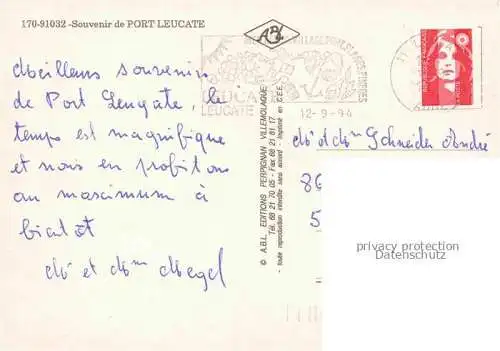 170-91032 -Souvenir de PORT LEUCATE
ABL
LEUCATE
12-9-94
RÉPUBLIQUE FRANÇAISE
Meilleurs souvenirs
de Port Leugate, le
temps est magnifique
et nous en profitons
au mascimum à
bientôt
Mr et Mme Megel
© A.B.L. EDITIONS PERPIGNAN VILLEMOLAQUE
Tél. 68 21 70 05 - Fax 68 21 81 17
- toute reproduction interdite sans accord - Imprimé en C.E.E.
Mr et Mme Schneider André
86
5
privacy protection
Datenschutz